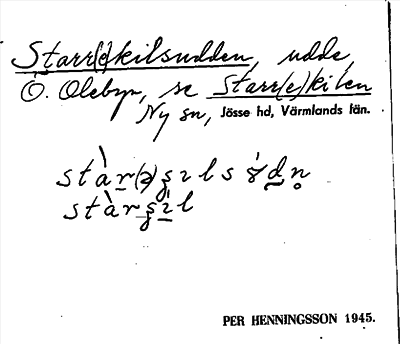 Starr(e)kilsudden, udde,
Ö. Oleby, se Starr(e)kilen
Ny sn, Jösse hd, Värmlands län.
stàr(ə)ʂɪls
stàrʂɪl
PER HENNINGSSON 1945.